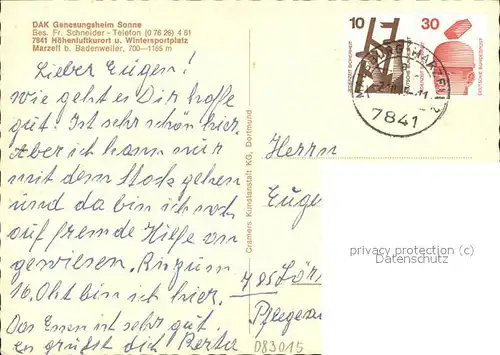 DAK Genesungsheim Sonne
Bes. Fr. Schneider - Telefon (0 76 26) 4 61
7841 Höhenluftkurort u. Wintersportplatz
Marzell b. Badenweiler, 700—1165 m
Lieber Eugen!
Wie geht es Dir hoffe
gut. Ist sehr schön hier.
Aber ich kann nur
mit dem Stock gehen
und da bin ich noch
auf fremde Hilfe an
gewiesen. Bis zum
16. Okt bin ich hier.
Das Essen ist sehr gut.
es grüßt dich Berta
Cramers Kunstanstalt KG, Dortmund
10
30
DEUTSCHE BUNDESPOST
7841
Herrn
Euge
785 Lör
Pflege
D83015
privacy protection (c)
Datenschutz